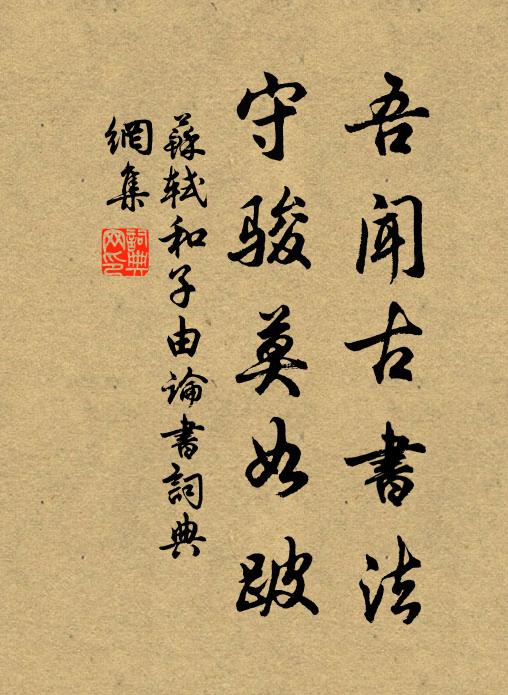 吾闻古書法
守骏莫如跛
蘇軾和子由論書詞典
網集
詞典网印